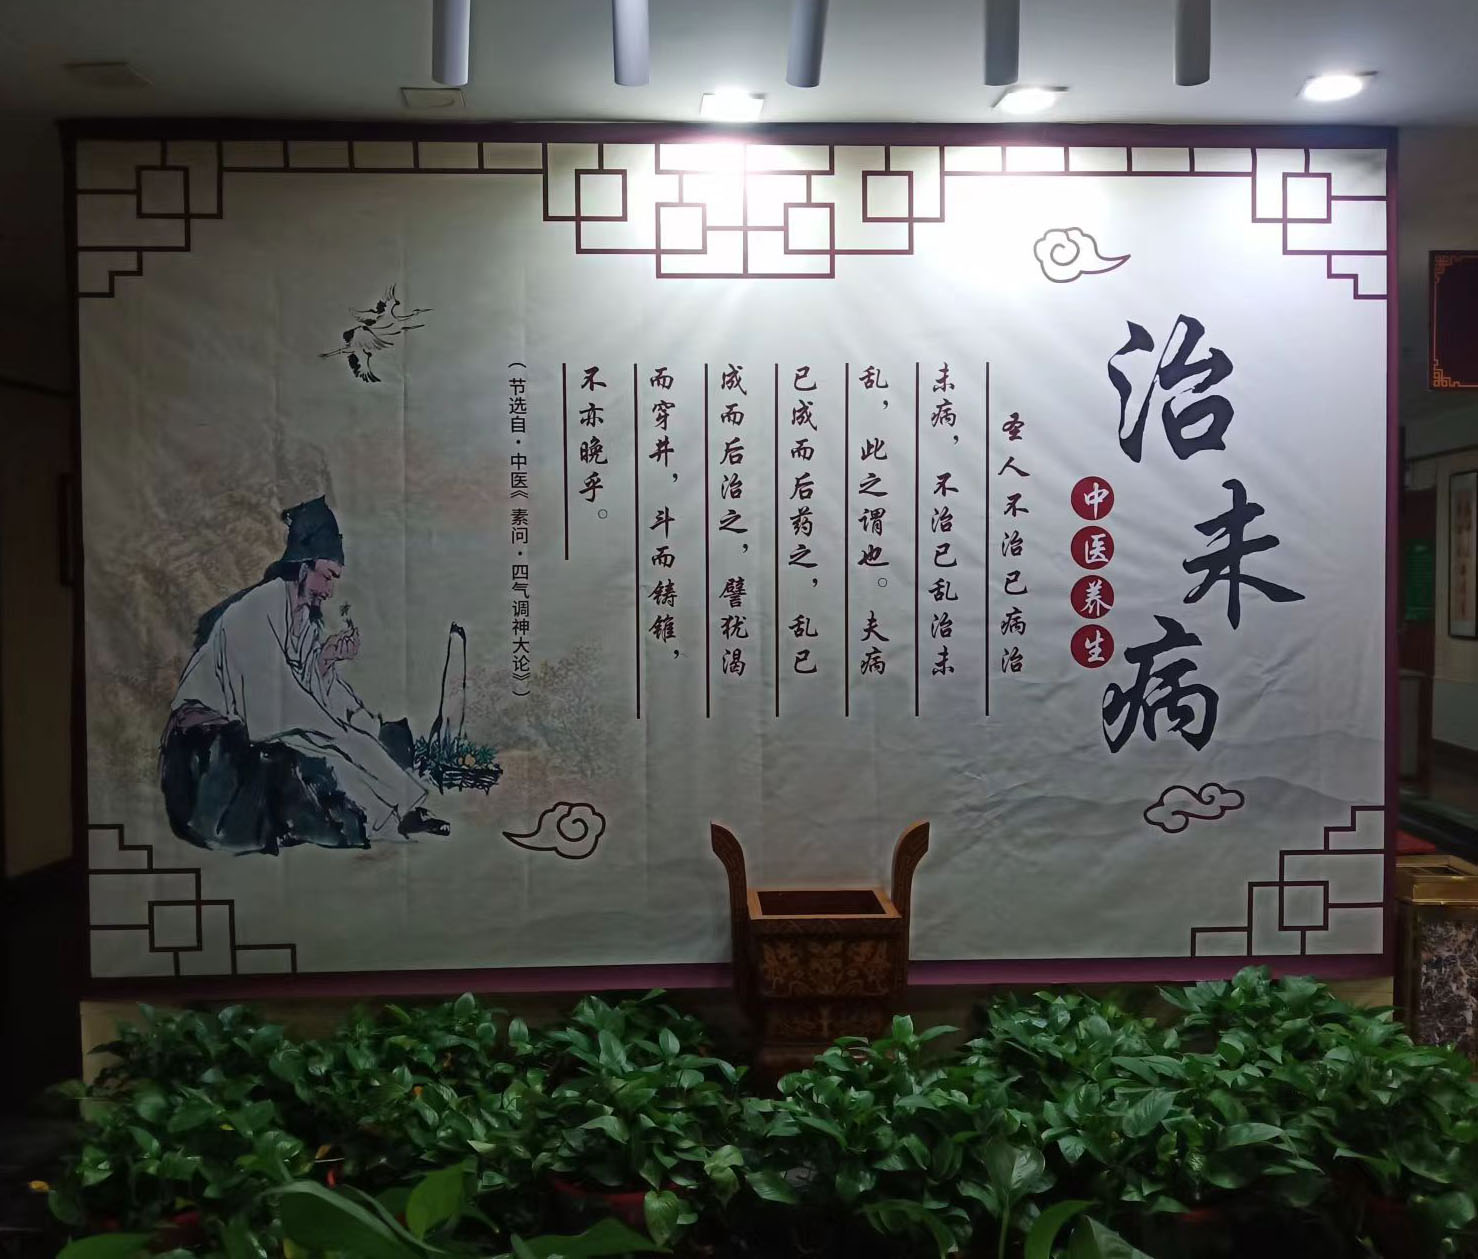 治未病
中医养生
圣人不治已病治
未病，不治已乱治未
乱，此之谓也。夫病
已成而后药之，乱已
成而后治之，譬犹渴
而穿井，斗而铸锥，
不亦晚乎。
（节选自·中医《素问·四气调神大论》）